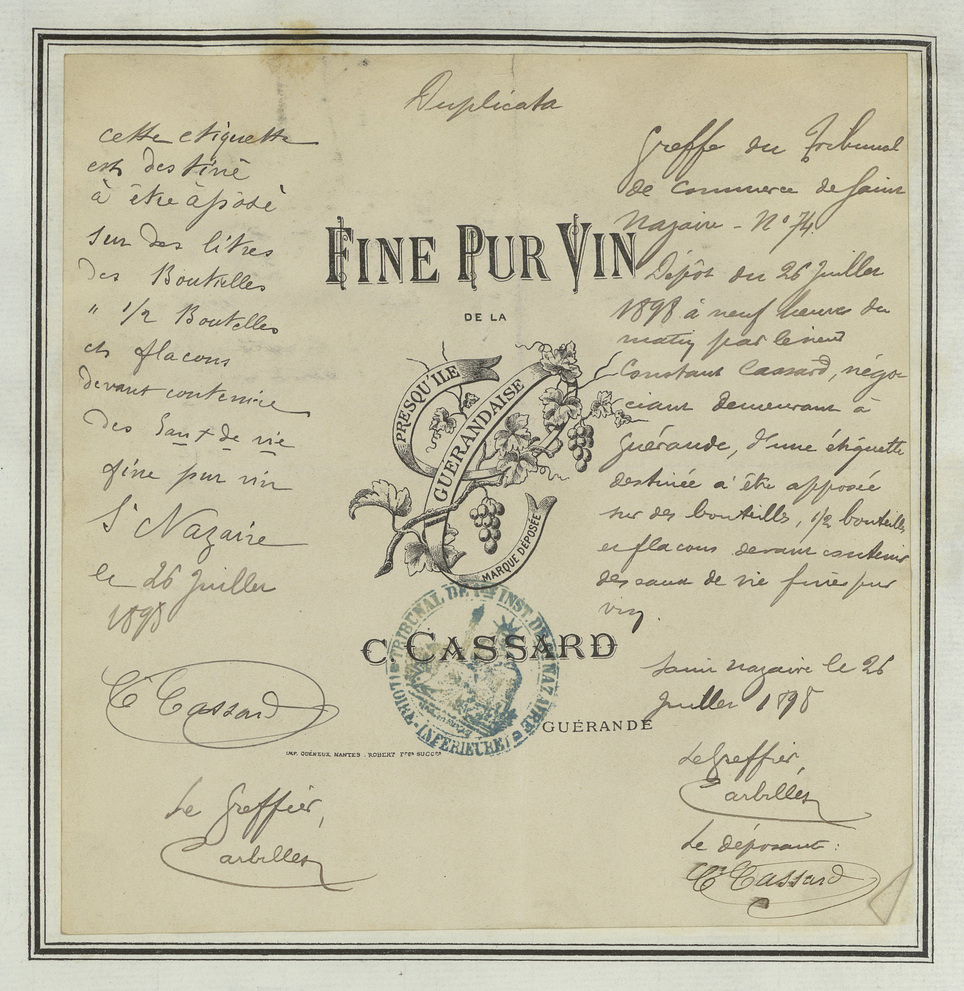 Duplicata
cette etiquette
est destiné
à être âposé
sur des litres
des Bouteilles
" 1/2 Bouteilles
et flacons
devant contenire
des Eaux de vie
fine pur vin
St Nazaire
le 26 Juillet
1898
Ct Cassard
Le Greffier,
FINE PUR VIN
DE LA
PRESQU'ILE
GUÉRANDAISE
MARQUE DÉPOSÉE
C. CASSARD
GUÉRANDE
TRIBUNAL DE 1ère INST. DE ST NAZAIRE
(LOIRE-INFÉRIEURE)
IMP. QUÉNEUX, NANTES. ROBERT FRES SUCCRS
Greffe du Tribunal
de Commerce de Saint
Nazaire - N° 74
Dépôt du 26 Juillet
1898 à neuf heures du
matin par le sieur
Constant Cassard, négo-
ciant demeurant à
Guérande, d'une étiquette
destinée à être apposée
sur des bouteilles, 1/2 bouteilles
et flacons devant contenir
des eaux de vie fine pur
vin.
Saint Nazaire le 26
Juillet 1898
Le Greffier,
Le déposant :
Ct Cassard